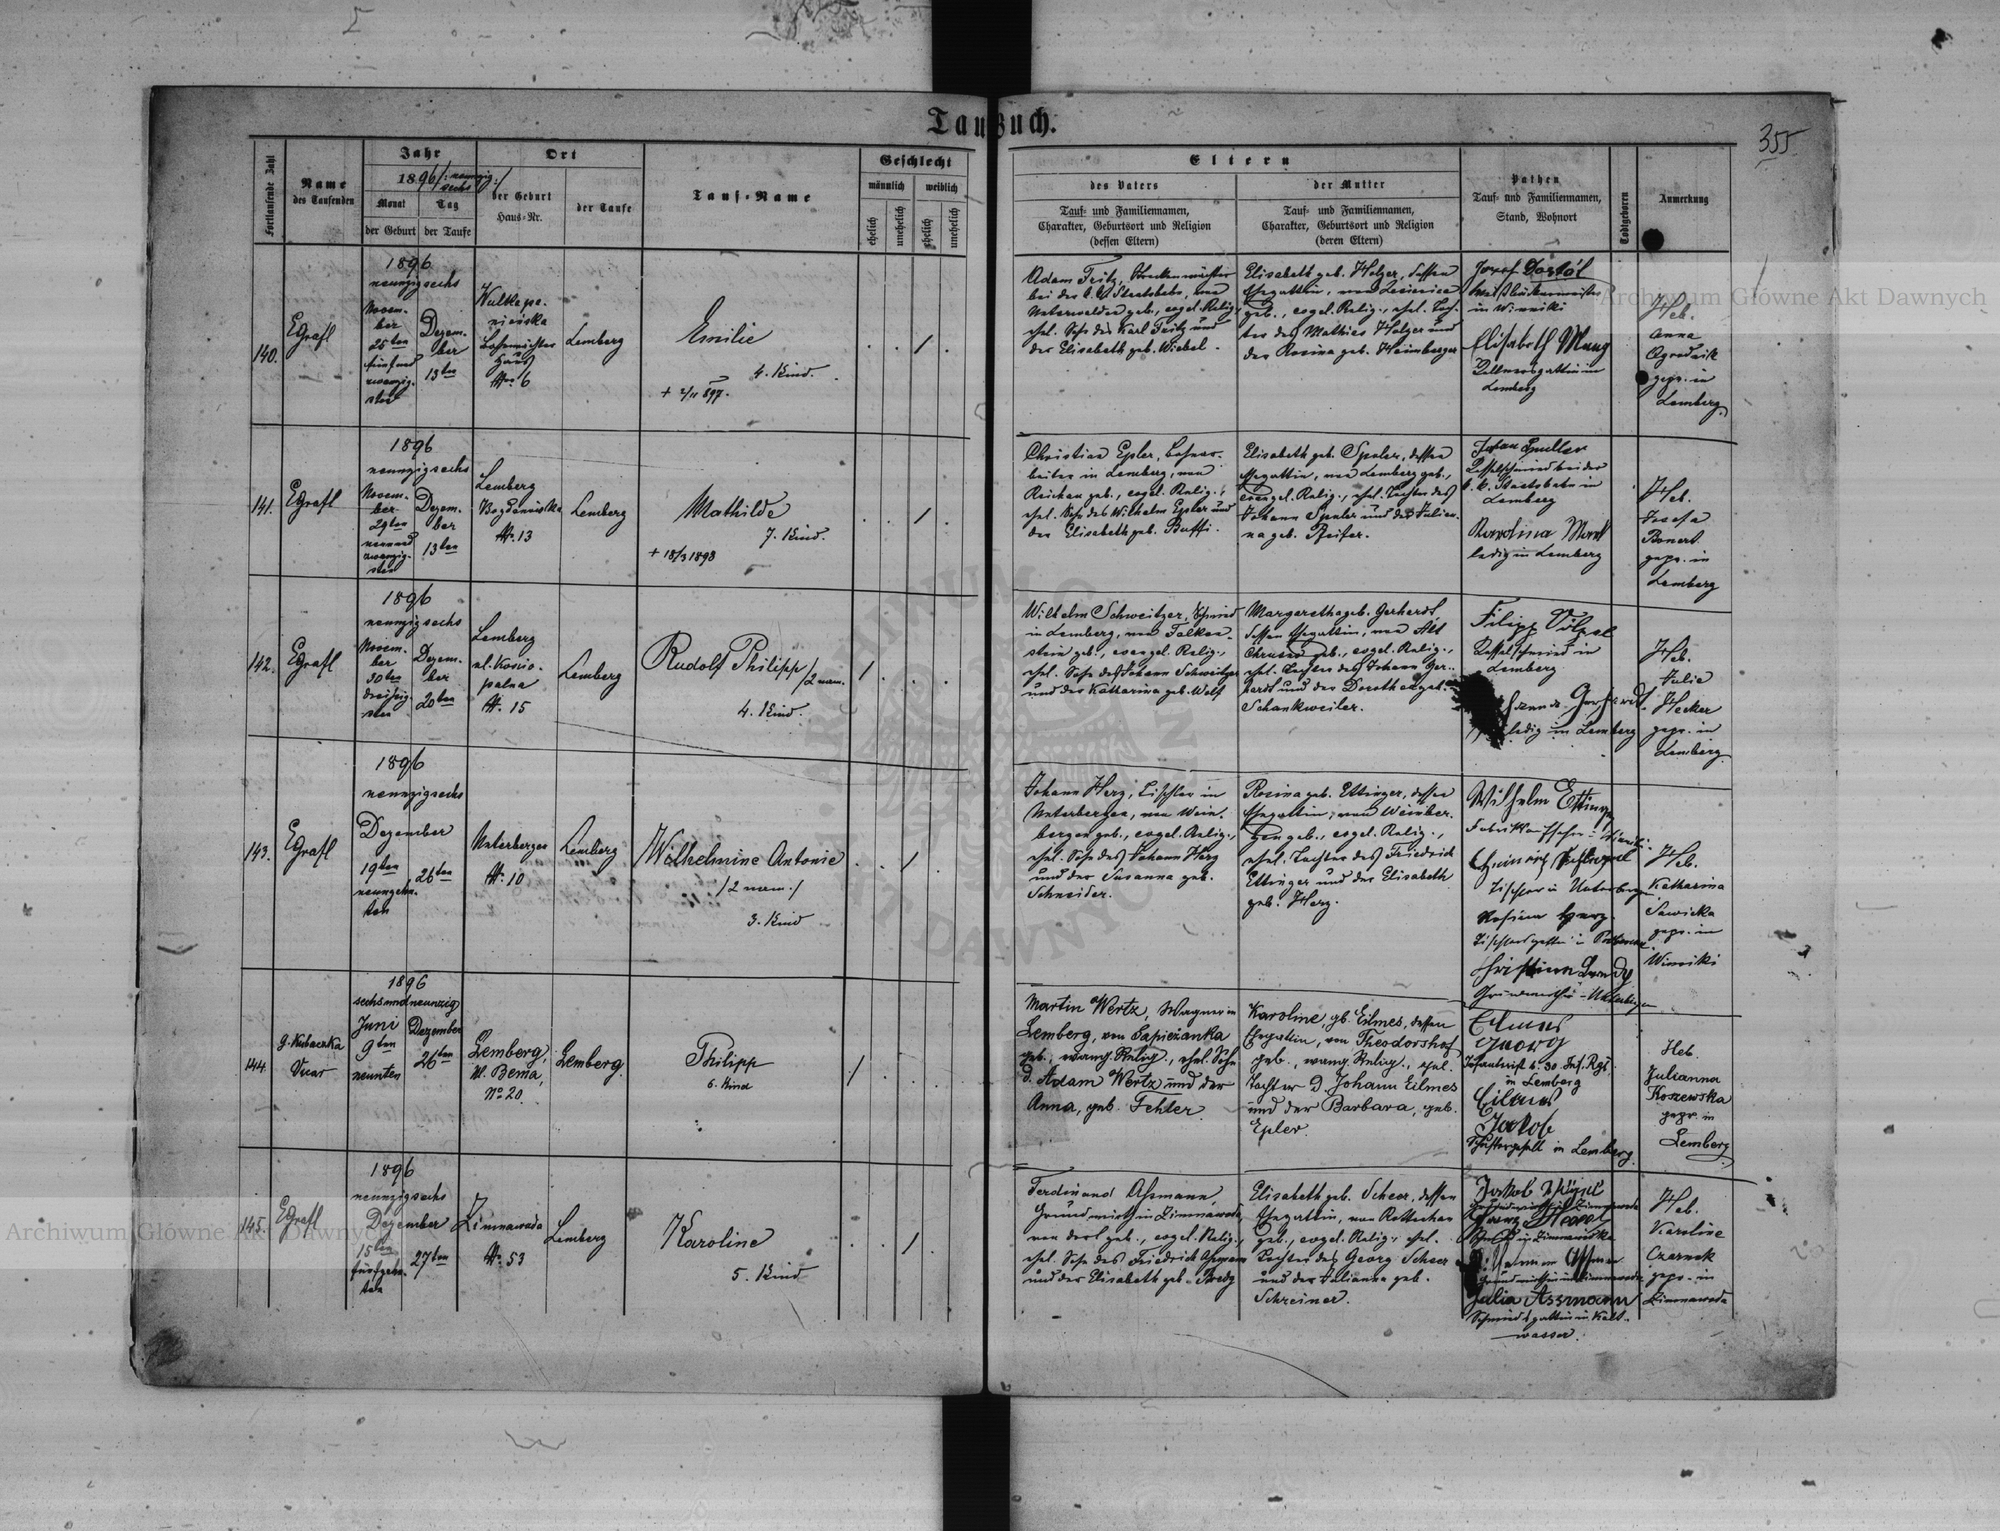 Taufbuch.
355
Fortlaufende Zahl
Name
des Taufenden
Jahr
1896 /: neunzig-
sechs :/
Monat
Tag
der Geburt
der Taufe
Ort
der Geburt
Haus-Nr.
der Taufe
Tauf-Name
Geschlecht
männlich
weiblich
ehelich
unehelich
ehelich
unehelich
Eltern
des Vaters
Tauf- und Familiennamen,
Charakter, Geburtsort und Religion
(dessen Eltern)
der Mutter
Tauf- und Familiennamen,
Charakter, Geburtsort und Religion
(deren Eltern)
Pathen
Tauf- und Familiennamen,
Stand, Wohnort
Todtgeboren
Anmerkung
140.
Egrafl
1896
neunzigsechs
Novem-
ber
25ten
fünfund
zwanzig-
sten
Dezem-
ber
13ten
Haus
No 6
Lemberg
Emilie
4. Kind.
Adam Fritz,
bei der k.k. Staatsbahn, von
Unterwalden geb., evgel. Relig.,
ehel. Sohn des Karl Fritz und
der Elisabeth geb. Wiebel.
Elisabeth geb. Holzer, dessen
Ehegattin, von
geb., evgel. Relig., ehel. Toch-
ter des Mathias Holzer und
der Rosina geb. Heimberger
Josef
in Winniki
Elisabeth Mang
Lemberg
Heb.
Anna
Ogrodnik
gepr. in
Lemberg.
141.
Egrafl
1896
neunzigsechs
Novem-
ber
29ten
neunund
zwanzig-
sten
Dezem-
ber
13ten
Lemberg
No. 13
Lemberg
Mathilde
7. Kind.
+ 18/3 1898
Christian Epler, Bahnar-
beiter in Lemberg, von
Reichau geb., evgel. Relig.,
ehel. Sohn des Wilhelm Epler und
der Elisabeth geb. Buffi.
Elisabeth geb. Spuler, dessen
Ehegattin, von Lemberg geb.,
evangel. Relig., ehel. Tochter des
Johann Spuler und der Julian-
na geb. Pfeifer.
Kesselschmied bei der
k. k. Staatsbahn in
Lemberg
Karolina
ledig in Lemberg
Heb.
Josefa
Bonert
gepr. in
Lemberg
142.
Egrafl
1896
neunzigsechs
Novem-
ber
30ten
dreißig-
sten
Dezem-
ber
20ten
Lemberg
No. 15
Lemberg
Rudolf Philipp /2 nam.
4. Kind.
Wilhelm Schweitzer, Schmied
in Lemberg, von Falken-
stein geb., evangel. Relig.,
ehel. Sohn des Johann Schweitzer
und der Katharina geb. Wolf
Margaretha geb. Gerhardt,
dessen Ehegattin, von Alt
geb., evgel. Relig.,
ehel. Tochter des Johann Ger-
hardt und der Dorothea geb.
Schankweiler.
Filipp Völpel
Kesselschmied in
Lemberg
ledig in Lemberg
Heb.
Julie
Hecker
gepr. in
Lemberg
143.
Egrafl
1896
neunzigsechs
Dezember
19ten
neunzehn-
ten
26ten
Unterbergen
No. 10
Lemberg
Wilhelmine Antonie
/2 nam./
3. Kind
Johann Herz, Tischler in
Unterbergen, von Wein-
bergen geb., evgel. Relig.,
ehel. Sohn des Johann Herz
und der Susanna geb.
Schneider.
Rosina geb. Ettinger, dessen
Ehegattin, von Weinber-
gen geb., evgel. Relig.,
ehel. Tochter des Friedrich
Ettinger und der Elisabeth
geb. Herz.
Wilhelm Ettinger
Tischler in Unterbergen
Rosina Herz
Heb.
Katharina
Sawicka
gepr. in
Winniki
144.
Vicar
1896
sechsundneunzig
Juni
9ten
neunten
Dezember
26ten
Lemberg,
ul. Bema,
No 20.
Lemberg.
Philipp
6. Kind
Martin Wertz, Wagner in
Lemberg, von Sapieżanka
geb., evang. Relig., ehel. Sohn
d. Adam Wertz und der
Anna, geb. Fehler.
Karoline, gb. Eilmes, dessen
Ehegattin, von Theodorshof
geb., evang. Relig., ehel.
Tochter d. Johann Eilmes
und der Barbara, geb.
Epler.
Eilmes
Georg
Infanterist b. 30. Inf. Rgt.,
in Lemberg
Eilmes
Jakob
in Lemberg.
Heb.
Julianna
Koszewska
gepr. in
Lemberg
145.
Egrafl
1896
neunzigsechs
Dezember
15ten
fünfzehn-
ten
27ten
Zimnawoda
No. 53
Lemberg
Karoline
5. Kind
Ferdinand Aßmann,
Grundwirth in Zimnawoda,
von dort geb., evgel. Relig.,
ehel. Sohn des Friedrich Aßmann
und der Elisabeth geb.
Elisabeth geb. Scheer, dessen
Ehegattin, von Rottenhan
geb., evgel. Relig., ehel.
Tochter des Georg Scheer
und der Julianna geb.
Schreiner.
Jakob
Julia Assmann
Schmiedsgattin in Kalt-
wasser.
Heb.
Karoline
Czarnek
gepr. in
Zimnawoda
Archiwum Główne Akt Dawnych
Archiwum Główne Akt Dawnych